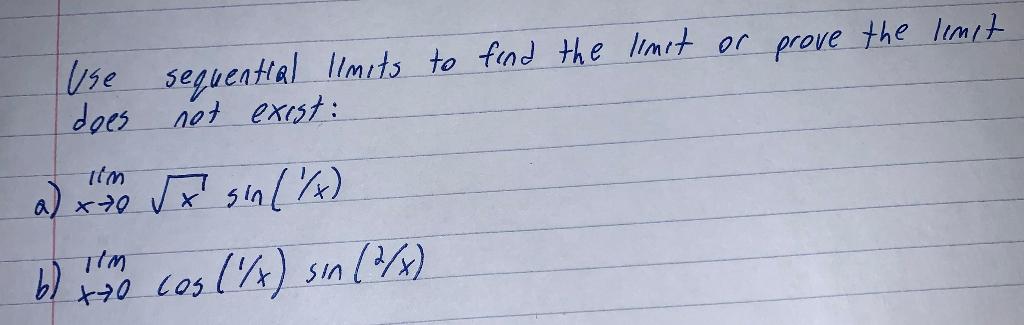 Use sequential limits to find the limit or prove the limit
does not exist:
a) lim x→0 √x sin(1/x)
b) lim x→0 cos(1/x) sin(2/x)